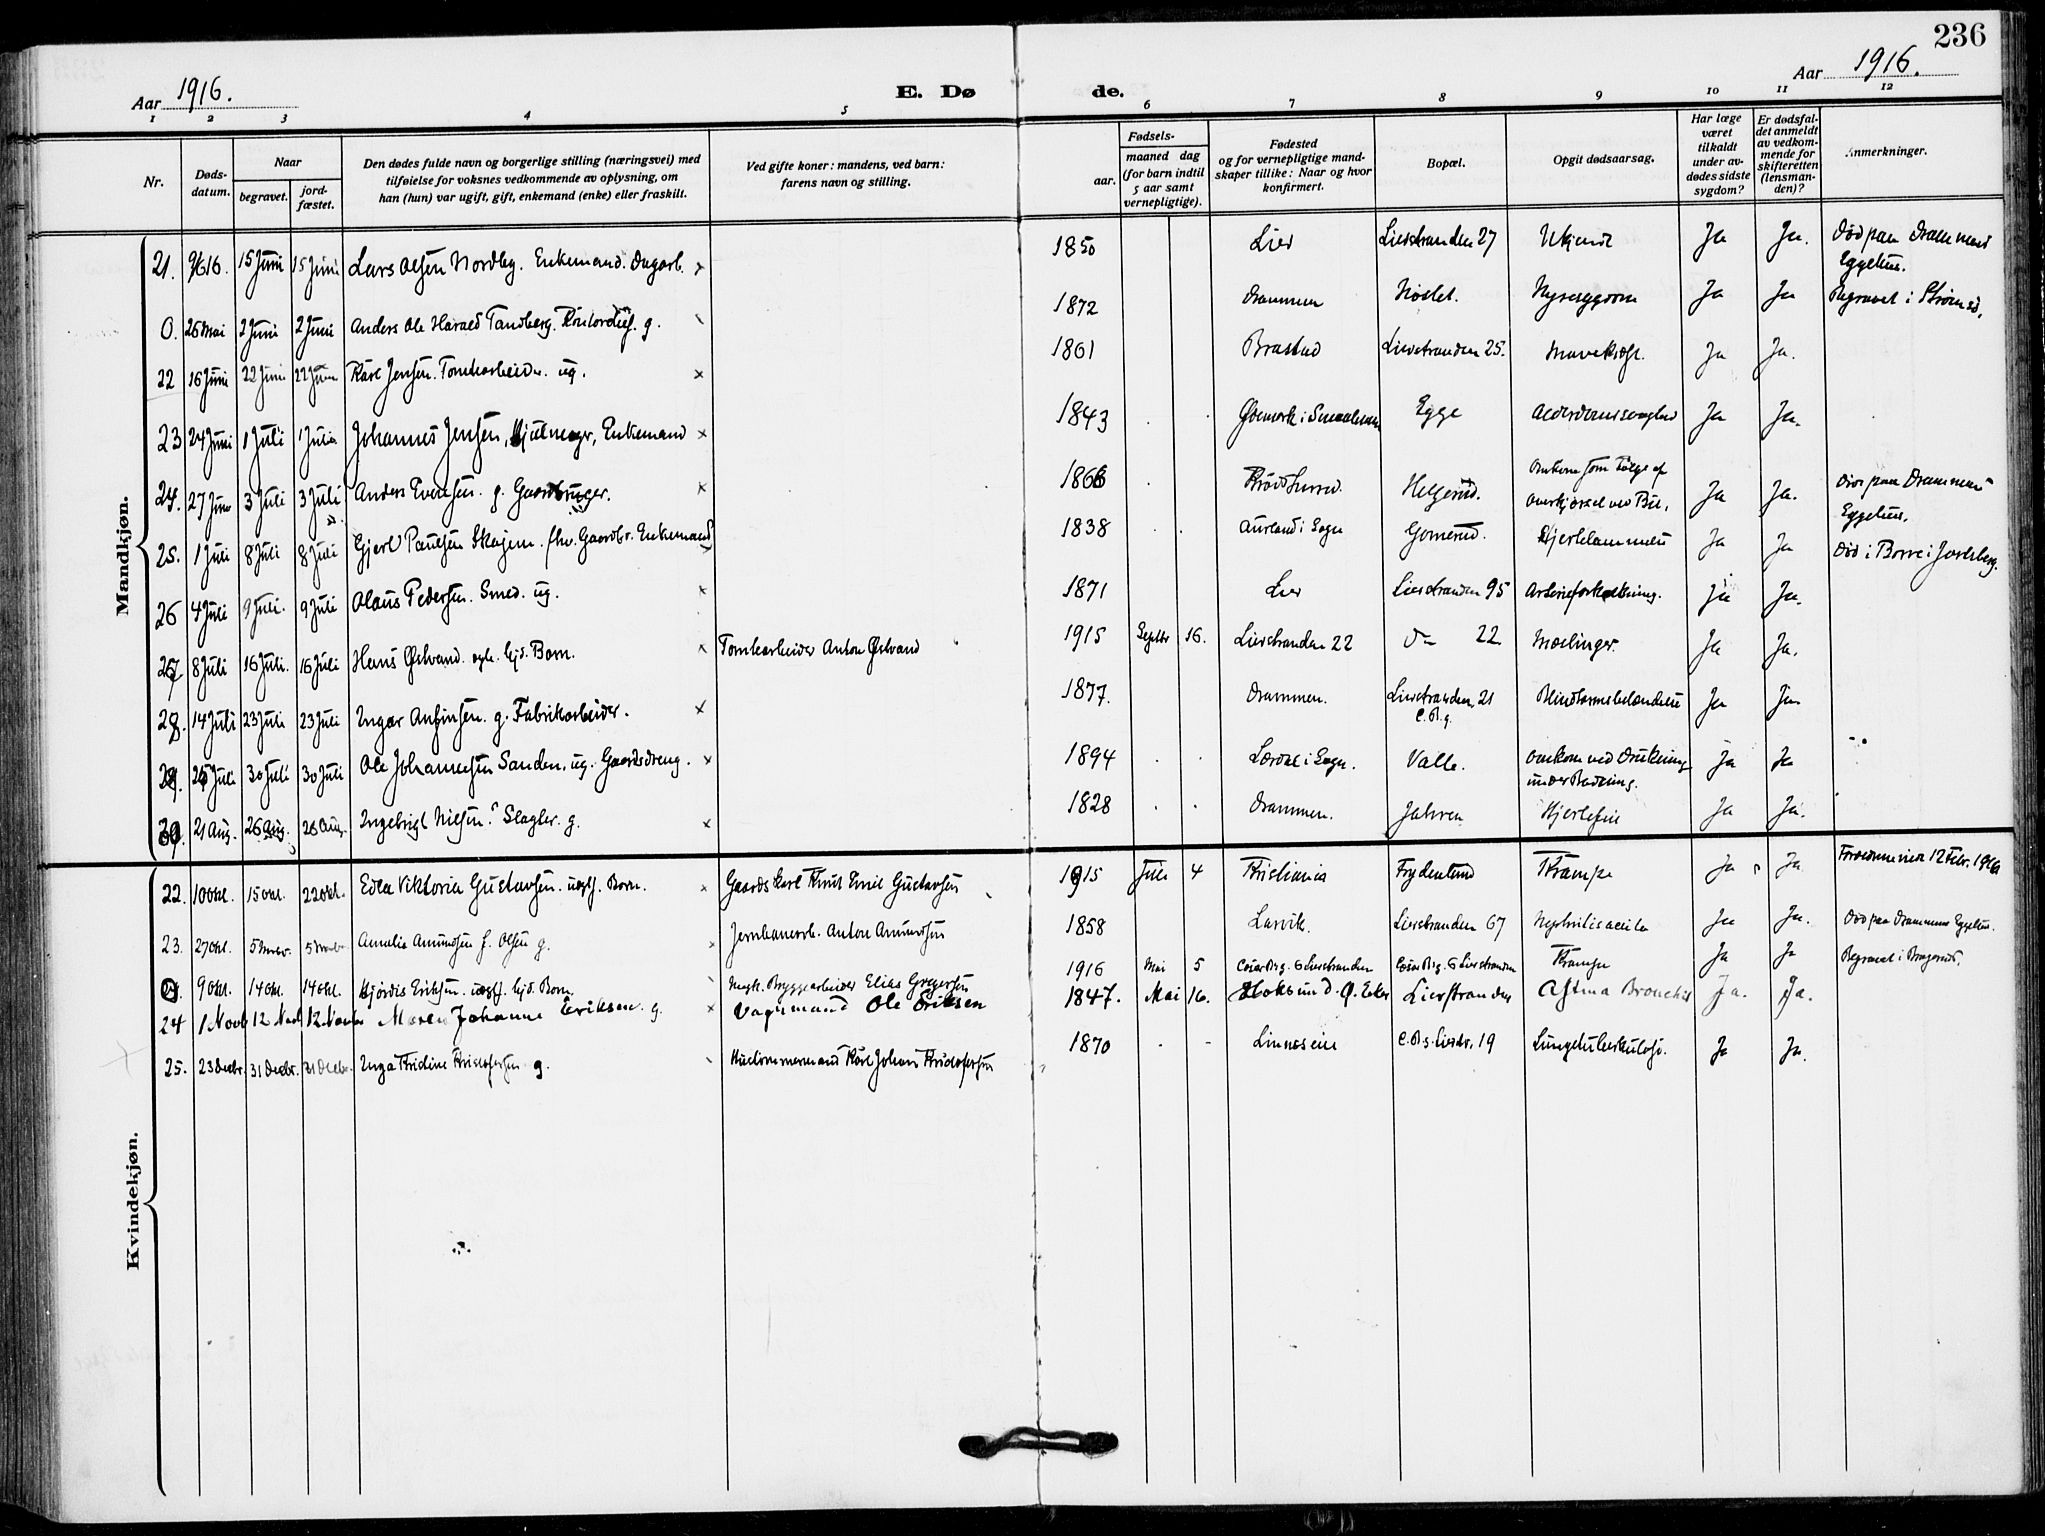 236
Aar 1916.
E. Dø de.
Aar 1916.
1 2 3 4 5 6 7 8 9 10 11 12
Nr.
Døds-datum.
Naar
begravet.
jord-fæstet.
Den dødes fulde navn og borgerlige stilling (næringsvei) med
tilføielse for voksnes vedkommende av oplysning, om
han (hun) var ugift, gift, enkemand (enke) eller fraskilt.
Ved gifte koner: mandens, ved barn:
farens navn og stilling.
Fødsels-
aar.
maaned dag
(for barn indtil
5 aar samt
vernepligtige).
Fødested
og for vernepligtige mand-
skaper tillike: Naar og hvor
konfirmert.
Bopæl.
Opgit dødsaarsag.
Har læge
været
tilkaldt
under av-
dødes sidste
sygdom?
Er dødsfal-
det anmeldt
av vedkom-
mende for
skifteretten
(lensman-
den)?
Anmerkninger.
Mandkjøn.
21. 9/6 16. 15 Juni 15 Juni Lars Olsen Nordby. Enkemand. Dagarb. x 1850 Lier Lierstranden 27 Ukjendt Ja Ja. Død paa Drammens
Sygehus.
0. 26 Mai 2 Juni 2 Juni Anders Ole Harald Tandberg. g. 1872 Drammen Nøste. Nyresygdom Ja Ja Begravet i Strømsø.
22 16 Juni 22 Juni 22 Juni Karl Jensen. Tomtearbeider. ug. x 1861 Brastad Lierstranden 25. Mavekræft. Ja Ja.
23 24 Juni 1 Juli 1 Juli Johannes Jensen, Hjulmager, Enkemand x 1843 Egge Alderdomssvaghed Ja Ja.
24. 27 Juni 3 Juli 3 Juli Anders Evensen. g. Gaardbruger. x 1866 Helgerud. Omkom som Følge af
overkjørsel ved Ja Ja. Død paa Drammens
Sygehus.
25. 1 Juli 8 Juli 8 Juli Gjert Paulsen fhv. Gaardbr. Enkemand 1838 Aurland i Sogn Gomerud. Hjertelammelse Ja Ja Død i Borre i Jarlsberg.
26 4 Juli 9 Juli. 9 Juli Olaus Pedersen. Smed. ug. x 1871 Lier Lierstranden 95 Arterieforkalkning. Ja Ja.
27 8 Juli 16 Juli. 16 Juli Hans Østvand. egte. hjd. Barn. x Tomtearbeider Anton Østvand 1915 Septbr 16. Lierstranden 22 do 22 Mæslinger. Ja Ja.
28. 14 Juli 23 Juli 23 Juli Ingar Anfinsen. g. Fabrikarbeider. x 1877. Drammen. Lierstranden 21
C.B.g. Blindtarmsbetændelse Ja Ja
29. 25 Juli 30 Juli 30 Juli Ole Johannesen Sanden, ug. Gaardsdreng. x 1894 Lærdal i Sogn. Valle. Omkom ved Drukning
under Badning. Ja Ja
30. 21 Aug. 26 Aug. 26 Aug. Ingebrigt Nilsen. Slagter. g. x 1828 Drammen. Jahren Hjertefeil Ja Ja.
Kvindekjøn.
22. 10 Okt. 15 Okt. 22 Okt. Edla Viktoria Gustavsen. uegtf. Barn. x Gaardskarl Knut Emil Gustavsen 1915 Juli 4 Kristiania Frydenlund Krampe Ja Ja 12 Febr. 1916
23. 27 Okt. 5 Novbr. 5 Novbr. Amalie Amundsen f. Olsen g. x Jernbanearb. Anton Amundsen 1858 Larvik. Lierstranden 67 Nephritis acuta Ja Ja. Død paa Drammens Sygehus.
24. 9 Okt. 14 Okt. 14 Okt. Hjørdis Eriksen. uegtf. hjd. Barn. Bryggearbeider Elias Gregersen 1916 Mai 5 6 Lierstranden 6 Lierstranden Krampe Ja Ja Begravet i Bragernes.
24 1 Novb 12 Novb 12 Novbr Maren Johanne Eriksen. g. x Vognmand Ole Eriksen 1847. Mai 16. Hoksund. Ø. Eker Lierstranden Astma Bronchit Ja. Ja.
25. 23 Decbr. 31 Decbr. 31 Decbr. Inga Kristine Kristofersen g. Karl Johan Kristofersen 1870 C.B.g. Lierstr. 19 Lungetuberkulose. Ja Ja.